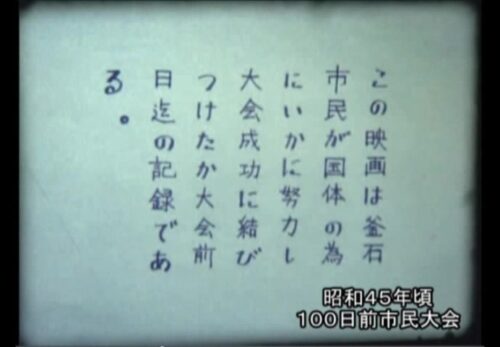 この映画は釜石
市民が国体の為
にいかに努力し
大会成功に結び
つけたか大会前
日迄の記録であ
る。
昭和45年頃
100日前市民大会